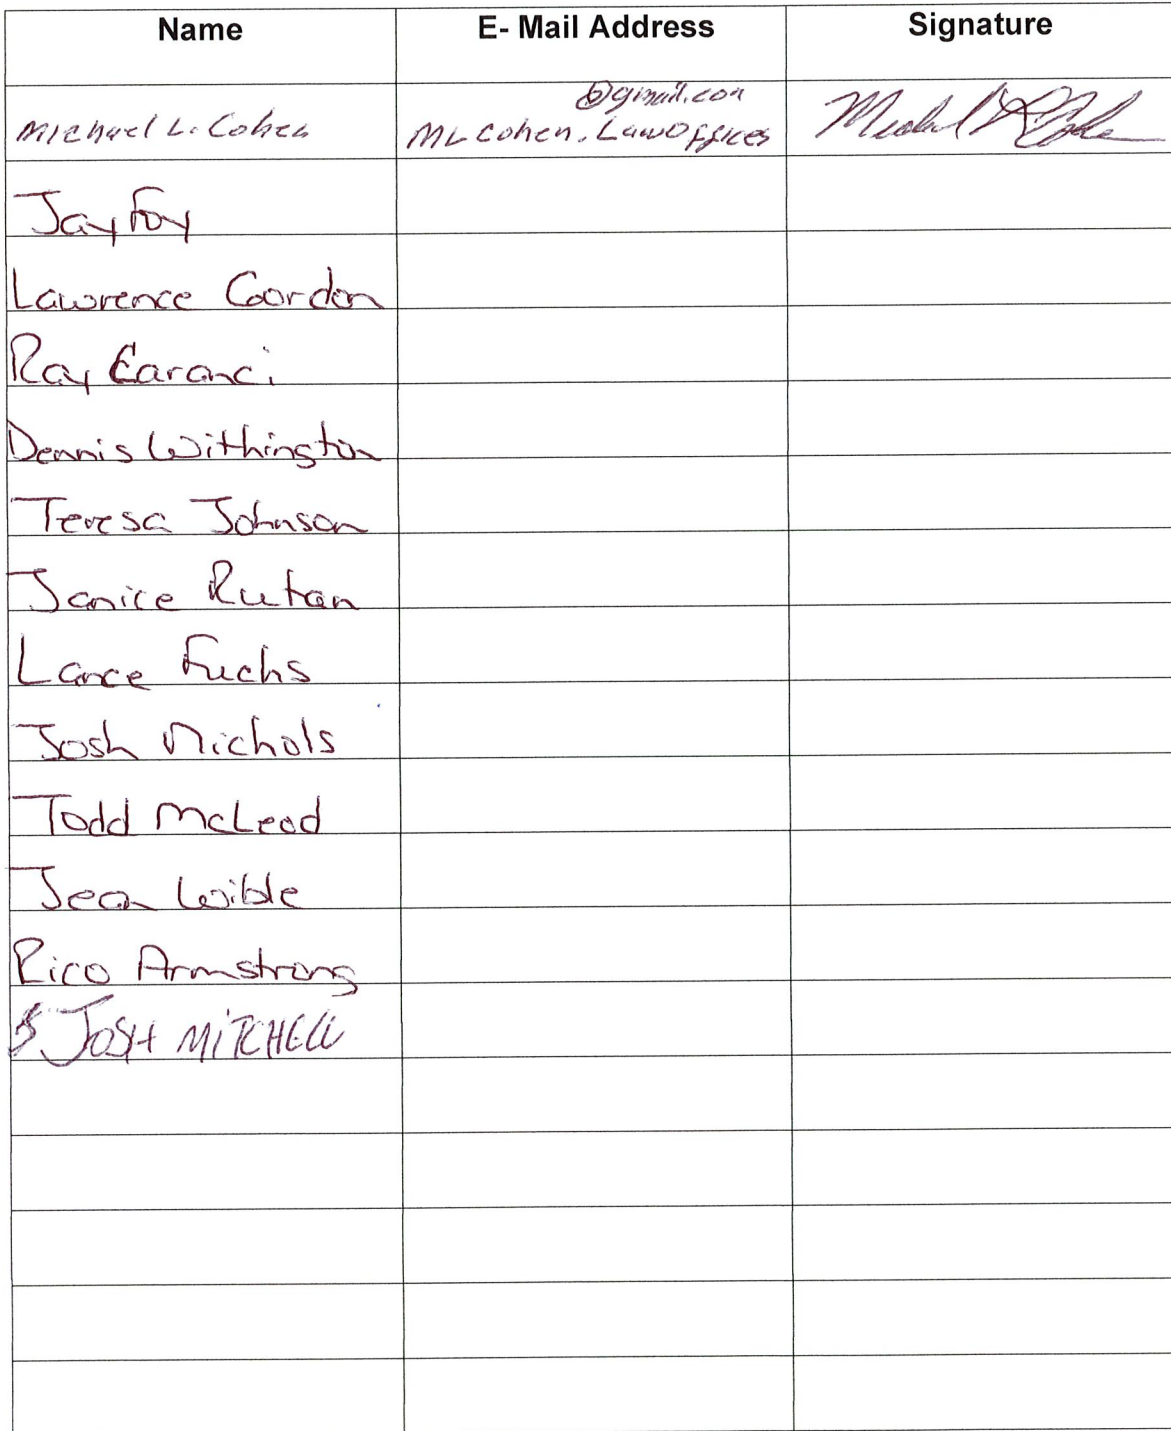 Name E- Mail Address Signature
@gmail.com
Michael L. Cohen MLCohen.LawOffices
Jay Foy
Lawrence Gordon
Ray Caranci
Dennis Withington
Teresa Johnson
Janice Rutan
Lance Fuchs
Josh Nichols
Todd McLeod
Jean Wible
Rico Armstrong
JOSH MITCHELL